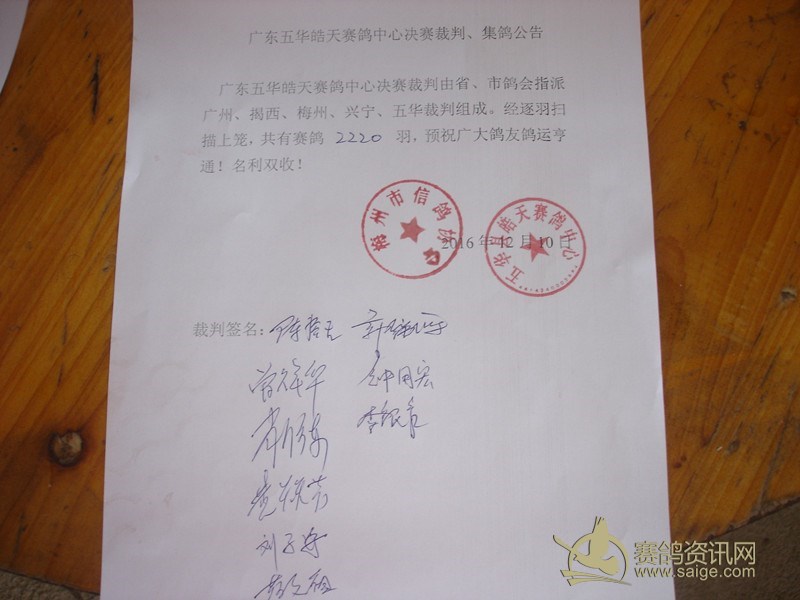 广东五华皓天赛鸽中心决赛裁判、集鸽公告
广东五华皓天赛鸽中心决赛裁判由省、市鸽会指派
广州、揭西、梅州、兴宁、五华裁判组成。经逐羽扫
描上笼，共有赛鸽 2220 羽，预祝广大鸽友鸽运亨
通！名利双收！
梅州市信鸽协会
五华县皓天赛鸽中心
2016年12月10日
裁判签名：
钟国宏
刘子安
赛鸽资讯网
www.saige.com